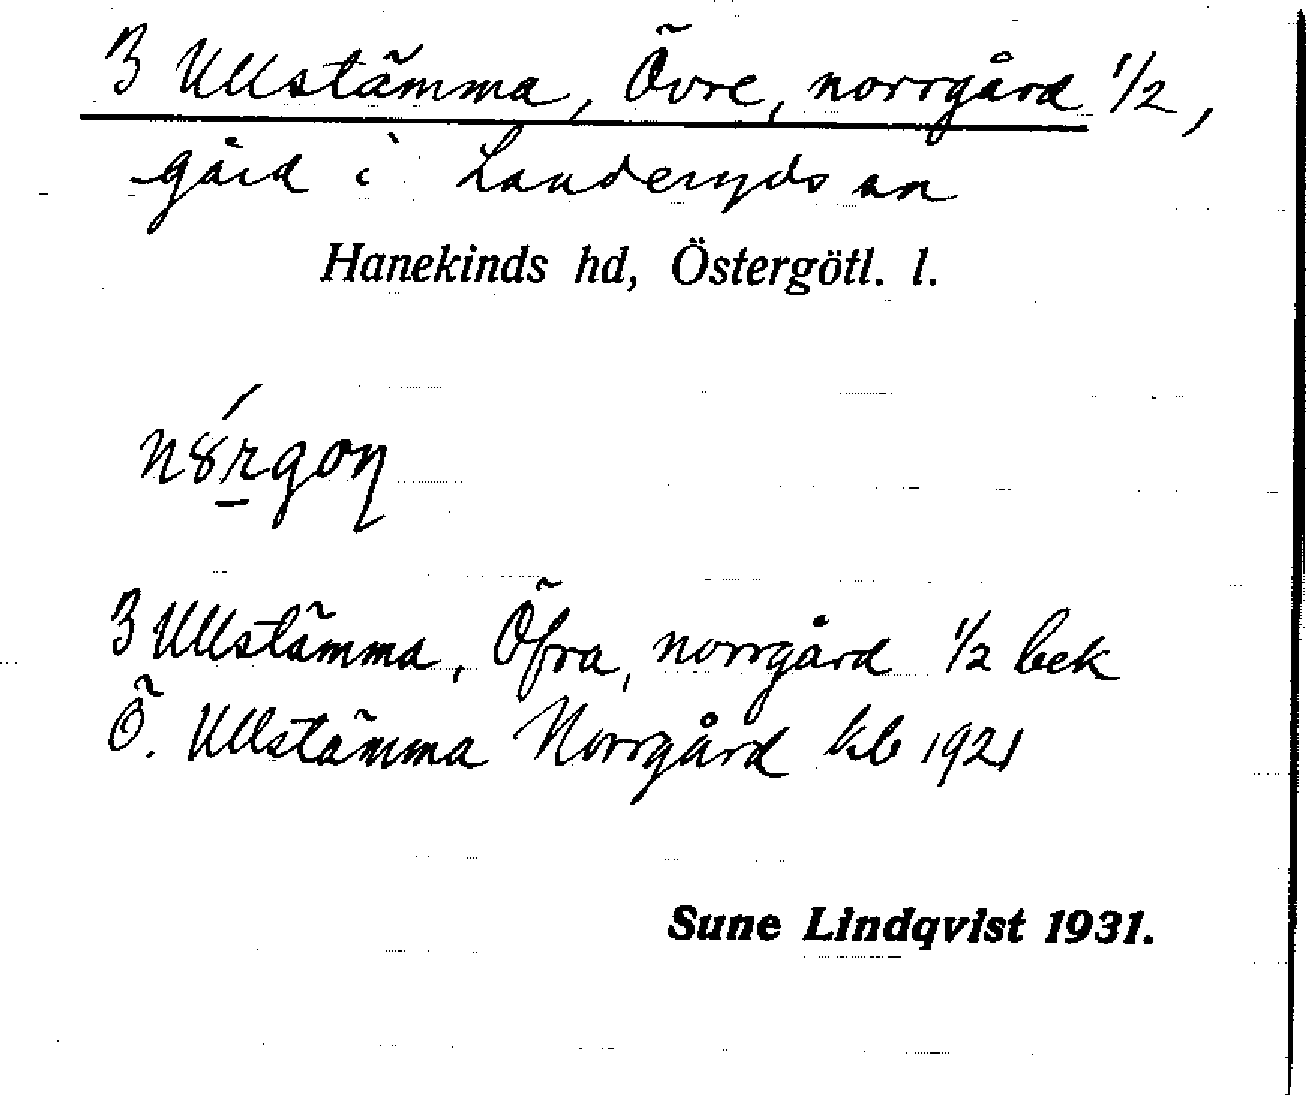 3 Ullstämma, Övre, norrgård 1/2,
gård i Landeryds sn
Hanekinds hd, Östergötl. l.
n8́r̲goɳ
3 Ullstämma, Öfra, norrgård 1/2 bek
Ö. Ullstämma Norrgård kb 1921
Sune Lindqvist 1931.